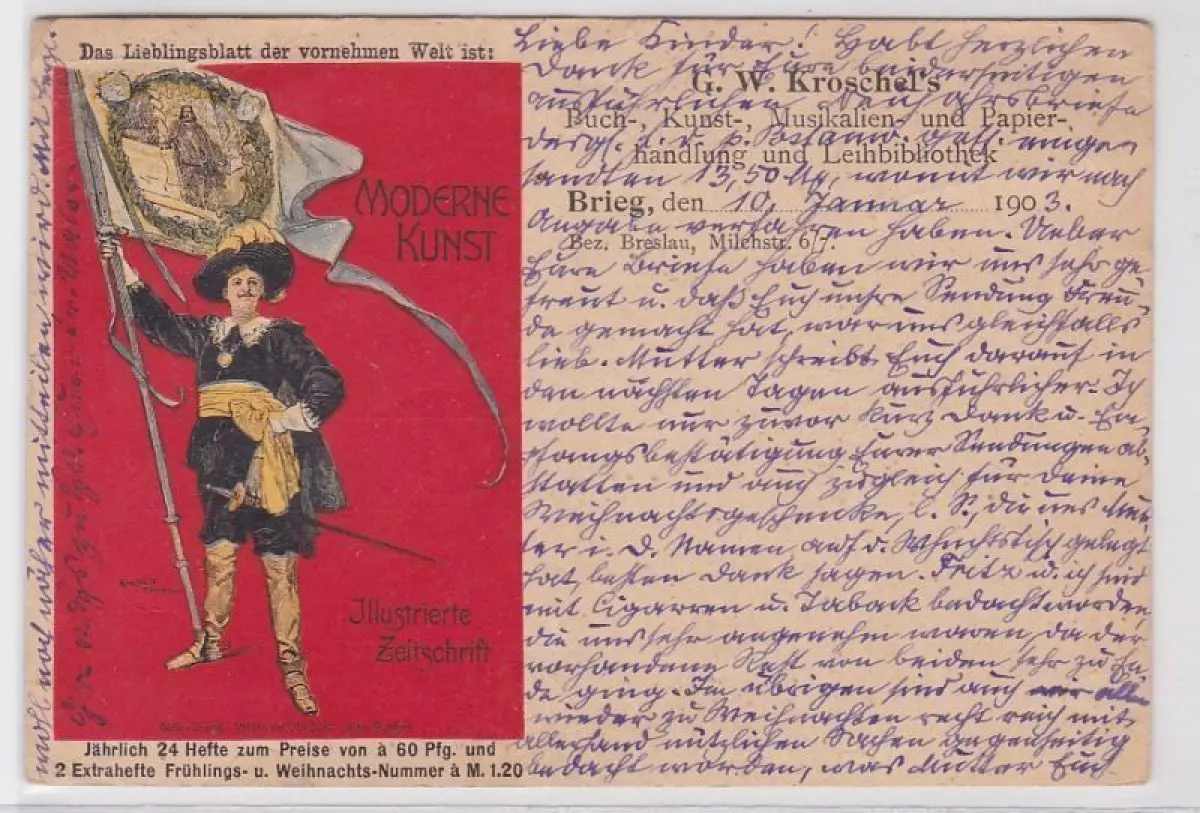 Das Lieblingsblatt der vornehmen Welt ist:
MODERNE
KUNST
Illustrierte
Zeitschrift
Jährlich 24 Hefte zum Preise von à 60 Pfg. und
2 Extrahefte Frühlings- u. Weihnachts-Nummer à M. 1.20
G. W. Kroschel's
Buch-, Kunst-, Musikalien- und Papier-
handlung und Leihbibliothek
Brieg, den 10. Januar 1903.
Bez. Breslau, Milchstr. 6/7.
Liebe Kinder! Habt herzlichen
Dank für Eure beiderseitigen
ausführlichen Neujahrsbriefe
desgl. f. d. p. Postanw. gefl. eingesandten
13,50 M, womit wir nach
Angabe verfahren haben. Ueber
Eure Briefe haben wir uns sehr ge-
freut u. daß Euch unsre Sendung Freu-
de gemacht hat, war uns gleichfalls
lieb. Mutter schreibt Euch darauf in
den nächsten Tagen ausführlicher. Ich
wollte nur zuvor kurz Dank u. Em-
pfangsbestätigung Eurer Sendungen ab-
statten und auch zugleich für Deine
Weihnachtsgeschenke, l. S., die uns Mut-
ter i. D. Namen, auf d. Whnchtstisch gelegt
hat, besten Dank sagen. Fritz u. ich sind
mit Cigarren u. Taback bedacht worden
die uns sehr angenehm waren, da der
vorhandene Rest von beiden sehr zu En-
de ging. Im übrigen sind auch wir alle
wieder zu Weihnachten recht reich mit
allerhand nützlichen Sachen gegenseitig
bedacht worden, was Mutter Euch
wohl noch näher mitteilen wird. Mit herzl.